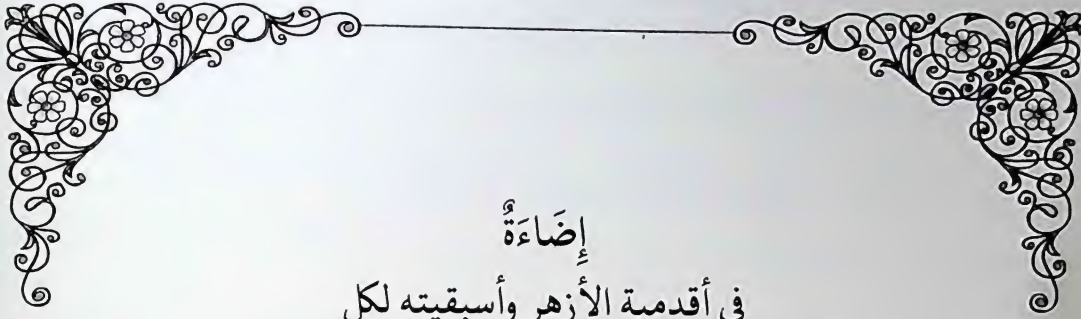 إِضَاءَةٌ
في أقدمية الأزهر وأسبقيته لكل